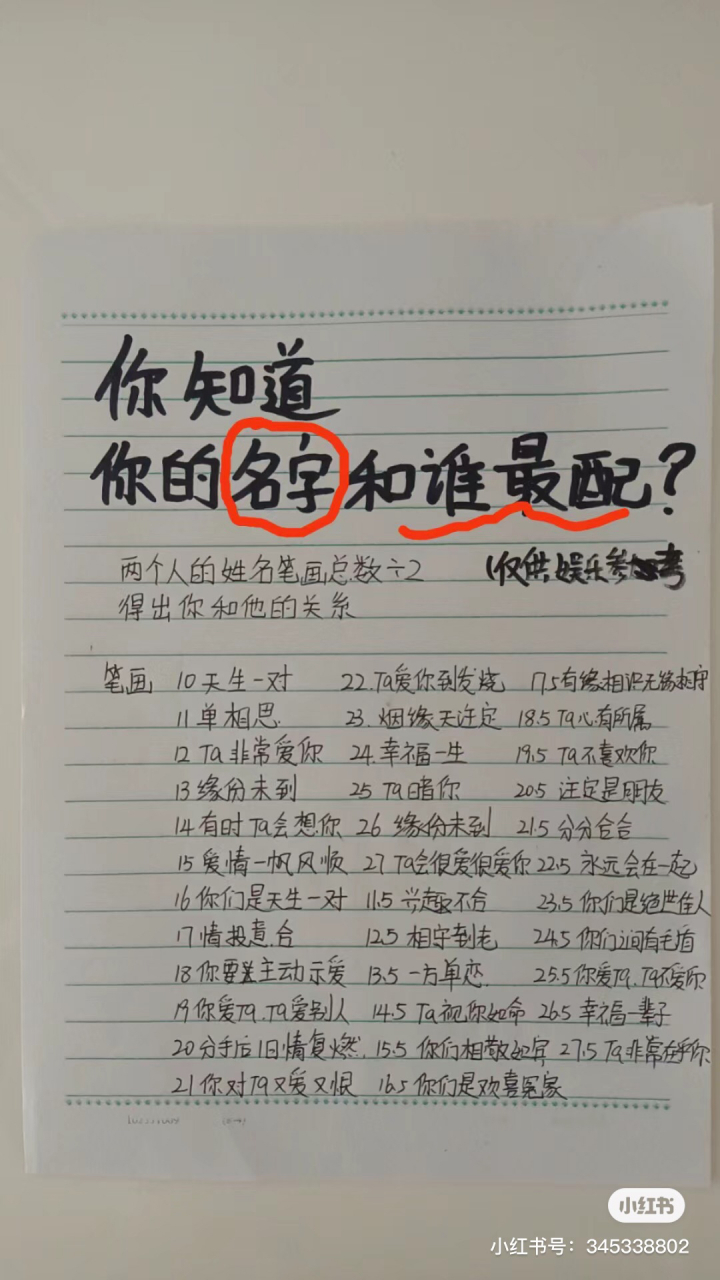 你知道
你的名字和谁最配?
两个人的姓名笔画总数÷2 (仅供娱乐参考
得出你和他的关系
笔画 10天生一对 22.Ta爱你到发烧 17.5有缘相识无缘相守
11单相思 23.烟缘天注定 18.5 Ta心有所属
12 Ta非常爱你 24.幸福一生 19.5 Ta不喜欢你
13缘份未到 25 Ta暗你 20.5 注定是朋友
14有时Ta会想你 26 缘份未到 21.5 分分合合
15 爱情一帆风顺 27 Ta会很爱很爱你 22.5 永远会在一起
16你们是天生一对 11.5 兴趣不合 23.5你们是绝世佳人
17情投意合 12.5 相守到老 24.5 你们之间有矛盾
18你要主动示爱 13.5 一方单恋 25.5你爱Ta.Ta不爱你
19你爱Ta.Ta爱别人 14.5 Ta视你如命 26.5 幸福一辈子
20分手后旧情复燃. 15.5 你们相敬如宾 27.5 Ta非常在乎你
21你对Ta又爱又恨 16.5你们是欢喜冤家
小红书
小红书号:345338802